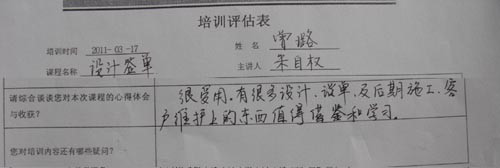 培训评估表
培训时间 2011-03-17 姓名 曾璐
课程名称 设计签单 主讲人 朱自权
请综合谈谈您对本次课程的心得体会 很受用。有很多设计、谈单、及后期施工、客
与收获? 户维护上的东西值得借鉴和学习。
您对培训内容还有哪些疑问?